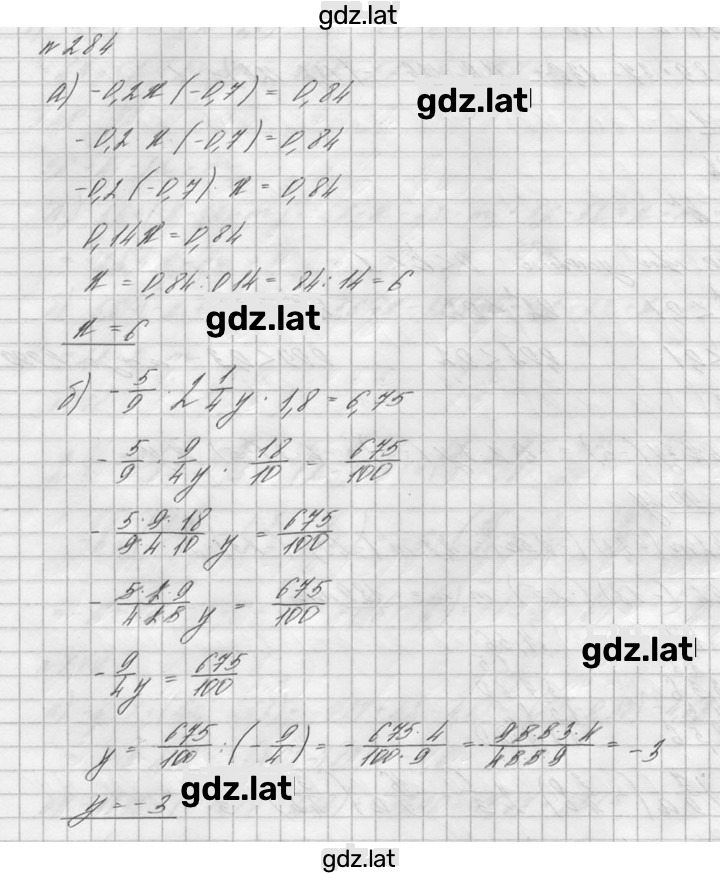 gdz.lat
№284
а) -0,2x (-0,7) = 0,84
gdz.lat
-0,2 x (-0,7) = 0,84
-0,2 (-0,7) · x = 0,84
0,14x = 0,84
x = 0,84 : 0,14 = 84 : 14 = 6
gdz.lat
x = 6
б) -5/9 · 2 1/4 y · 1,8 = 6,75
-5/9 · 9/4 y · 18/10 = 675/100
-(5·9·18)/(9·4·10) y = 675/100
-(5·2·9)/(4·2·5) y = 675/100
gdz.lat
-9/4 y = 675/100
y = 675/100 : (-9/4) = -(675·4)/(100·9) = -(9·5·5·3·4)/(4·5·5·9) = -3
gdz.lat
y = -3
gdz.lat